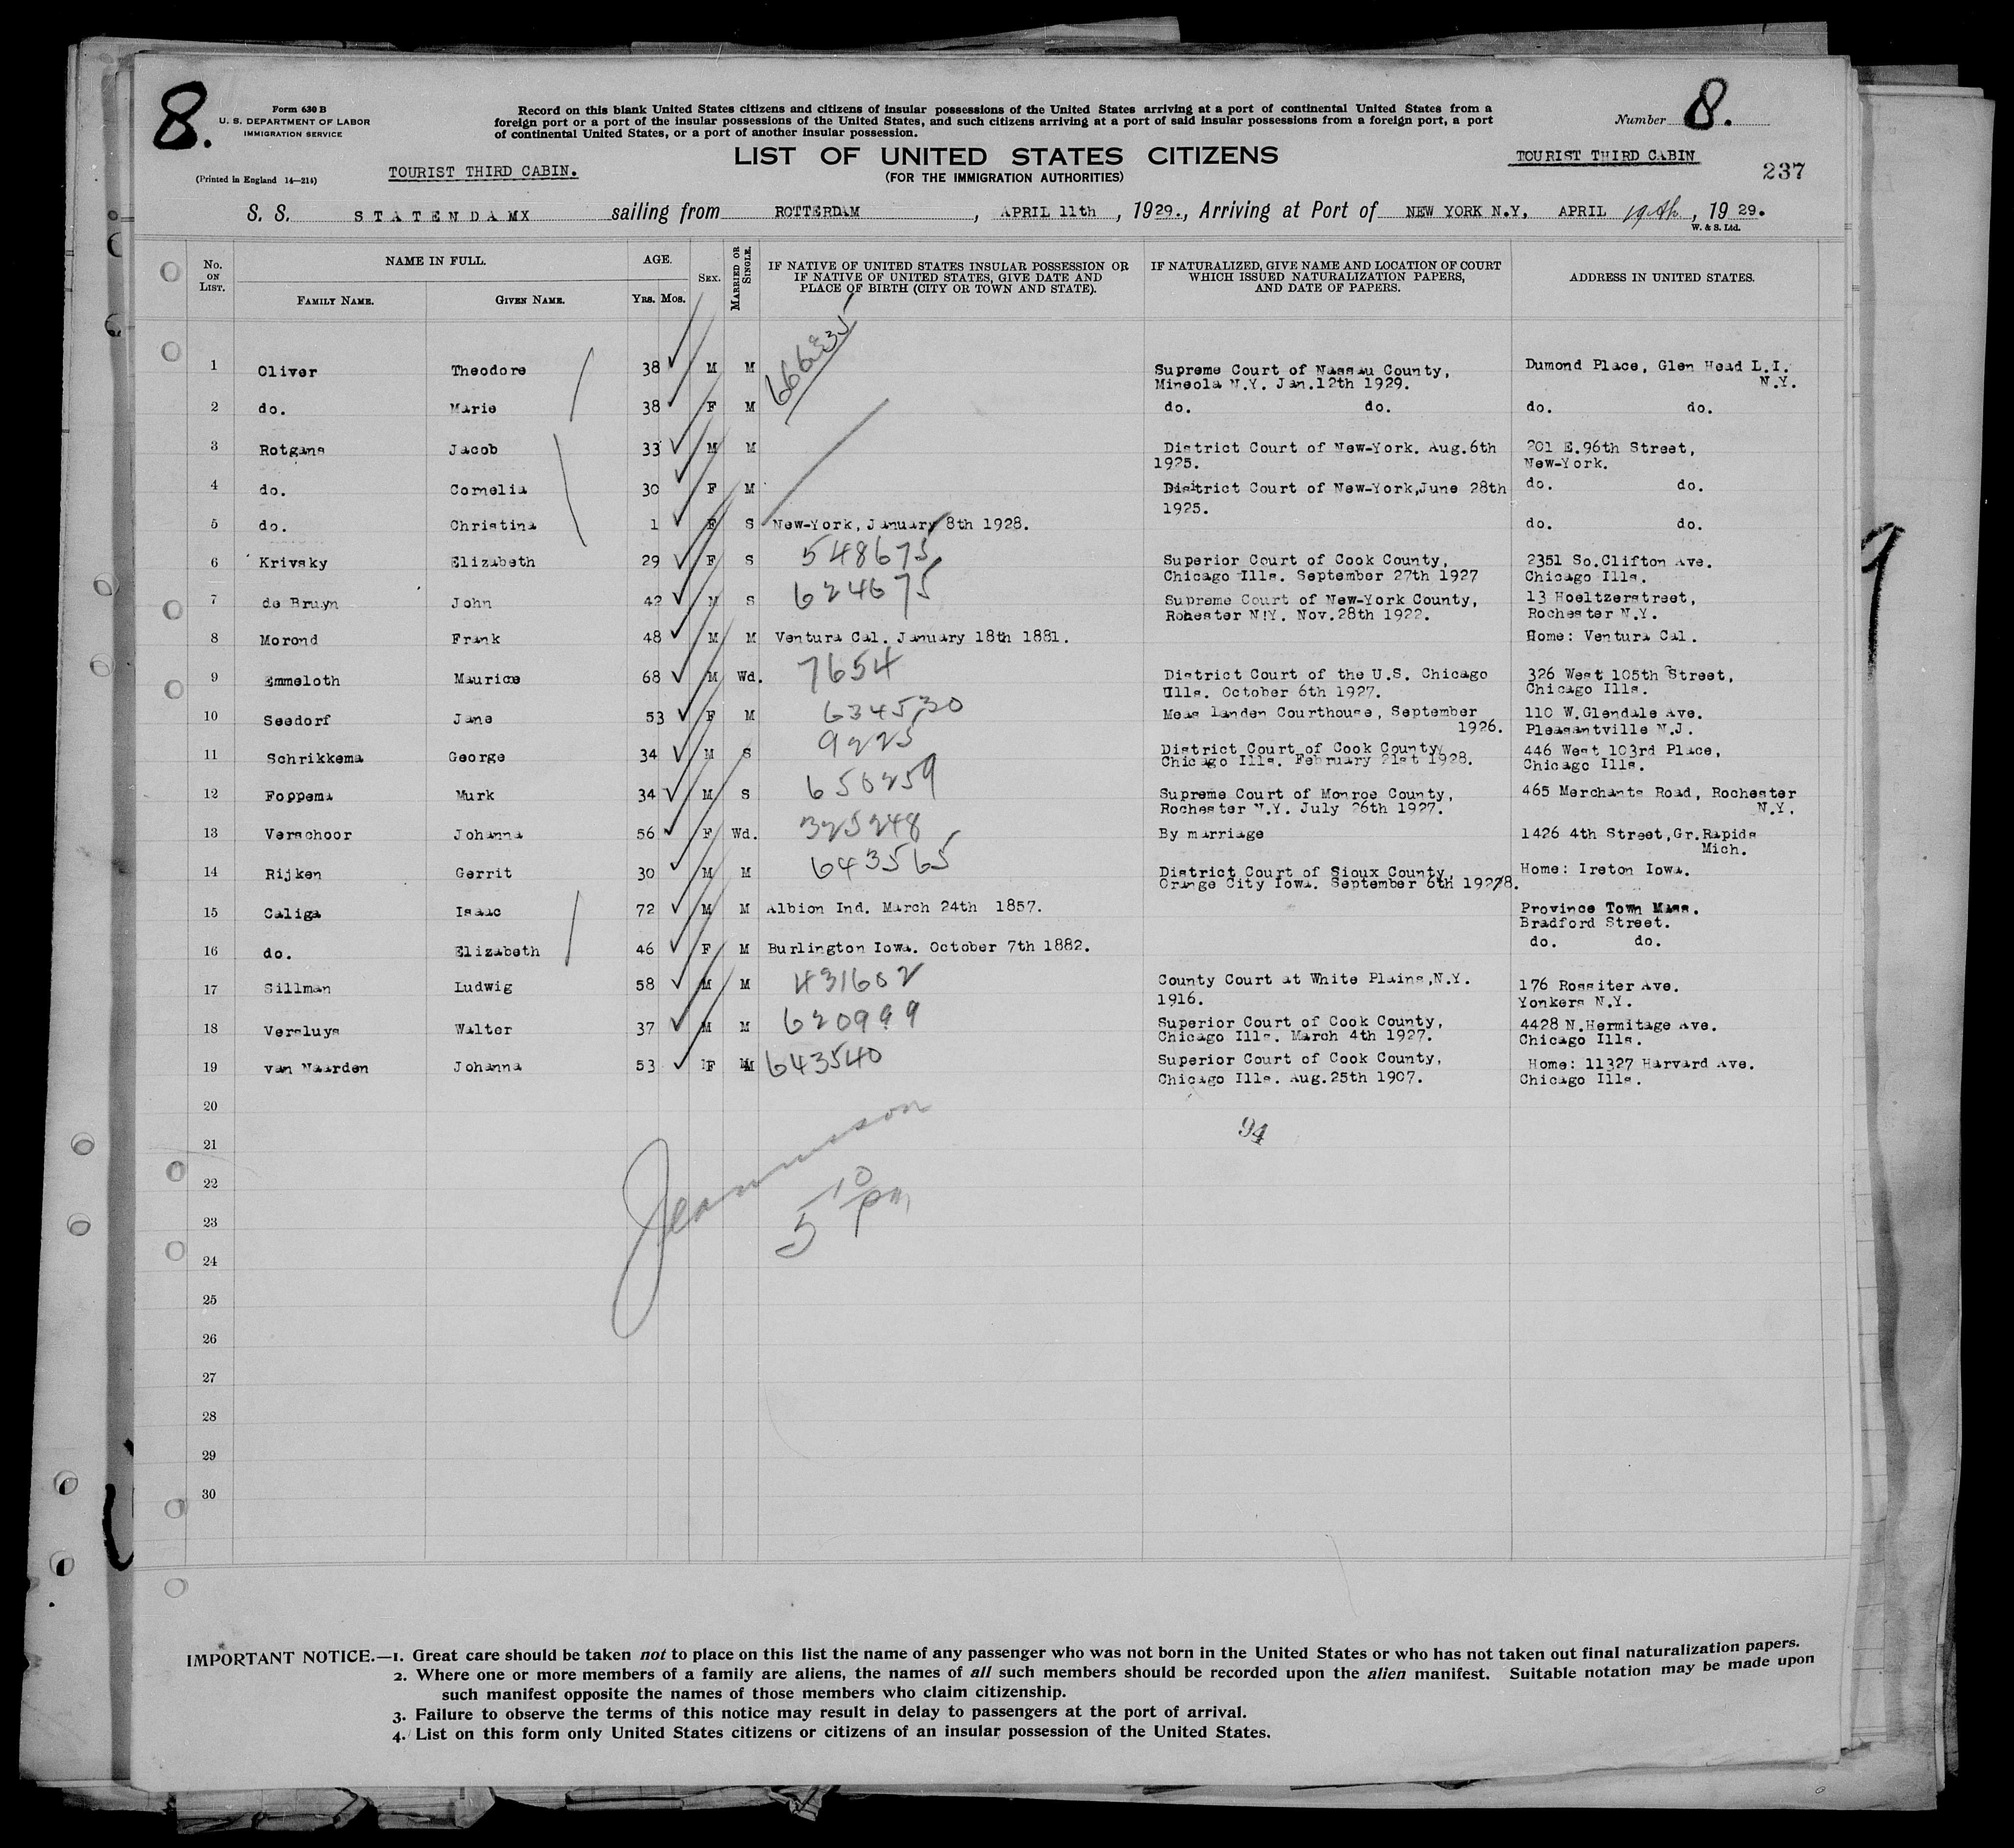 8.
Form 630 B
U. S. DEPARTMENT OF LABOR
IMMIGRATION SERVICE
(Printed in England 14—214)
TOURIST THIRD CABIN.
Record on this blank United States citizens and citizens of insular possessions of the United States arriving at a port of continental United States from a
foreign port or a port of the insular possessions of the United States, and such citizens arriving at a port of said insular possessions from a foreign port, a port
of continental United States, or a port of another insular possession.
LIST OF UNITED STATES CITIZENS
(FOR THE IMMIGRATION AUTHORITIES)
Number 8.
TOURIST THIRD CABIN
237
S. S. STATENDAMX sailing from ROTTERDAM, APRIL 11th, 1929., Arriving at Port of NEW YORK N.Y. APRIL 19th, 1929.
W. & S. Ltd.
No. ON LIST. NAME IN FULL. AGE. SEX. MARRIED OR SINGLE. IF NATIVE OF UNITED STATES INSULAR POSSESSION OR IF NATIVE OF UNITED STATES, GIVE DATE AND PLACE OF BIRTH (CITY OR TOWN AND STATE). IF NATURALIZED, GIVE NAME AND LOCATION OF COURT WHICH ISSUED NATURALIZATION PAPERS, AND DATE OF PAPERS. ADDRESS IN UNITED STATES.
FAMILY NAME. GIVEN NAME. YRS. MOS.
1 Oliver Theodore 38 M M Supreme Court of Nassau County, Dumond Place, Glen Head L.I.
Mineola N.Y. Jan.12th 1929. N.Y.
2 do. Marie 38 F M do. do. do. do.
3 Rotgans Jacob 33 M M District Court of New-York. Aug.6th 201 E.96th Street,
1925. New-York.
4 do. Cornelia 30 F M District Court of New-York,June 28th do. do.
1925.
5 do. Christina 1 F S New-York, January 8th 1928. do. do.
6 Krivsky Elizabeth 29 F S 548675 Superior Court of Cook County, 2351 So.Clifton Ave.
Chicago Ills. September 27th 1927 Chicago Ills.
7 de Bruyn John 42 M S 624675 Supreme Court of New-York County, 13 Hoeltzerstreet,
Rohester N!Y. Nov.28th 1922. Rochester N.Y.
8 Morond Frank 48 M M Ventura Cal. January 18th 1881. Home: Ventura Cal.
9 Emmeloth Maurice 68 M Wd. 7654 District Court of the U.S. Chicago 326 West 105th Street,
Ills. October 6th 1927. Chicago Ills.
10 Seedorf Jane 53 F M 634530 Meas landen Courthouse, September 110 W.Glendale Ave.
1926. Pleasantville N.J.
11 Schrikkema George 34 M S 9225 District Court of Cook County, 446 West 103rd Place,
Chicago Ills. February 21st 1928. Chicago Ills.
12 Foppema Murk 34 M S 650259 Supreme Court of Monroe County, 465 Merchants Road, Rochester
Rochester N.Y. July 26th 1927. N.Y.
13 Verschoor Johanna 56 F Wd. 325248 By marriage 1426 4th Street,Gr.Rapids
Mich.
14 Rijken Gerrit 30 M M 643565 District Court of Sioux County, Home: Ireton Iowa.
Orange City Iowa. September 6th 1928.
15 Caliga Isaac 72 M M Albion Ind. March 24th 1857. Province Town Mass.
Bradford Street.
16 do. Elizabeth 46 F M Burlington Iowa. October 7th 1882. do. do.
17 Sillman Ludwig 58 M M 431602 County Court at White Plains,N.Y. 176 Rossiter Ave.
1916. Yonkers N.Y.
18 Versluys Walter 37 M M 620999 Superior Court of Cook County, 4428 N.Hermitage Ave.
Chicago Ills. March 4th 1927. Chicago Ills.
19 van Naarden Johanna 53 F M 643540 Superior Court of Cook County, Home: 11327 Harvard Ave.
Chicago Ills. Aug.25th 1907. Chicago Ills.
20
21 94
22
5 10 pm
23
24
25
26
27
28
29
30
IMPORTANT NOTICE.—1. Great care should be taken not to place on this list the name of any passenger who was not born in the United States or who has not taken out final naturalization papers.
2. Where one or more members of a family are aliens, the names of all such members should be recorded upon the alien manifest. Suitable notation may be made upon
such manifest opposite the names of those members who claim citizenship.
3. Failure to observe the terms of this notice may result in delay to passengers at the port of arrival.
4. List on this form only United States citizens or citizens of an insular possession of the United States.